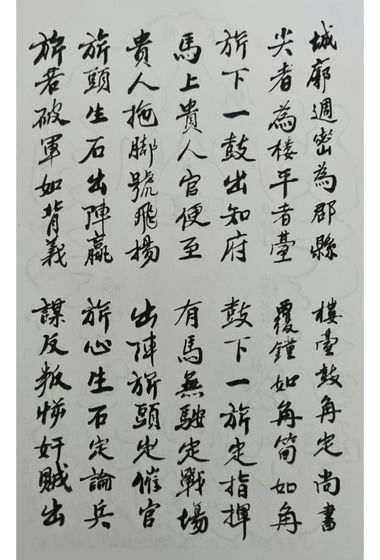 城廓週密為郡縣 樓臺鼓角定尚書
尖者為楼平者臺 覆鐘如角筒如角
旂下一鼓出知府 鼓下一旂定指揮
馬上貴人官便至 有馬無定戰場
貴人拖脚號飛揚 出陣旂頭定催官
旂頭生石出陣贏 旂心生石定論兵
旂若破軍如背義 謀反叛悖奸賊出